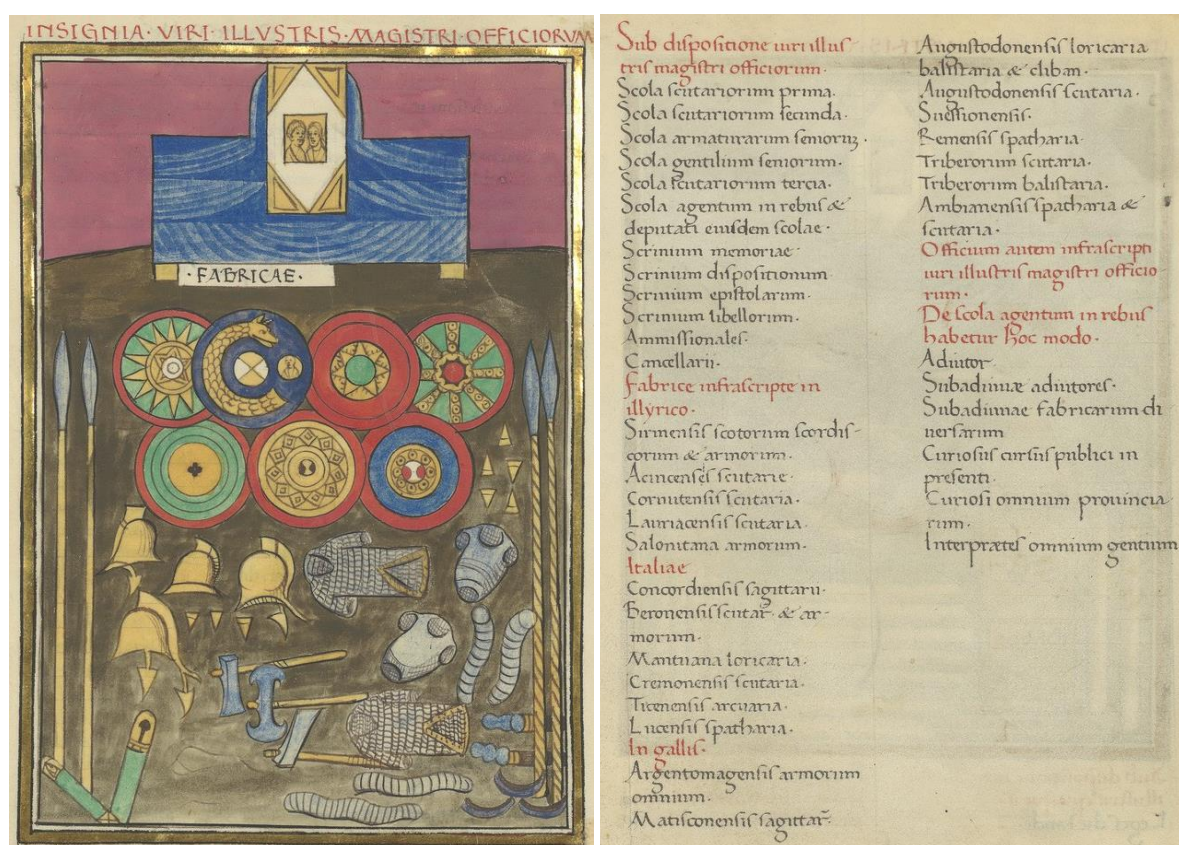 INSIGNIA · VIRI · ILLVSTRIS · MAGISTRI · OFFICIORVM
· FABRICAE ·
Sub dispositione uiri illus
tris magistri officiorum ·
Scola scutariorum prima ·
Scola scutariorum secunda ·
Scola armaturarum seniorum ·
Scola gentilium seniorum ·
Scola scutariorum tercia ·
Scola agentum in rebus &
deputati eiusdem scolae ·
Scrinium memoriae ·
Scrinium dispositionum
Scrinium epistolarum ·
Scrinium libellorum ·
Ammissionales ·
Cancellarii ·
Fabrice infrascripte in
illyrico ·
Sirmensis scotorum scordis-
corum & armorum ·
Acincenses scutarie ·
Cornutensis scutaria ·
Lauriacensis scutaria ·
Salonitana armorum ·
Italiae
Concordiensis sagittarii ·
Beronensis scutar · & ar-
morum ·
Mantuana loricaria ·
Cremonensis scutaria ·
Ticenensis arcuaria ·
Lucensis spatharia ·
In gallis ·
Argentomagensis armorum
omnium ·
Matisconensis sagittar ·
Augustodonensis loricaria
balistaria & cliban ·
Augustodonensis scutaria ·
Suessionensis ·
Remensis spatharia ·
Triberorum scutaria ·
Triberorum balistaria ·
Ambianensis spatharia &
scutaria ·
Officium autem infrascripti
uiri illustris magistri officio-
rum ·
De scola agentum in rebus
habetur hoc modo ·
Adiutor
Subadiuuae adiutores ·
Subadiuuae fabricarum di
uersarum
Curiosus cursus publici in
presenti ·
Curiosi omnium prouincia-
rum ·
Interpraetes omnium gentium